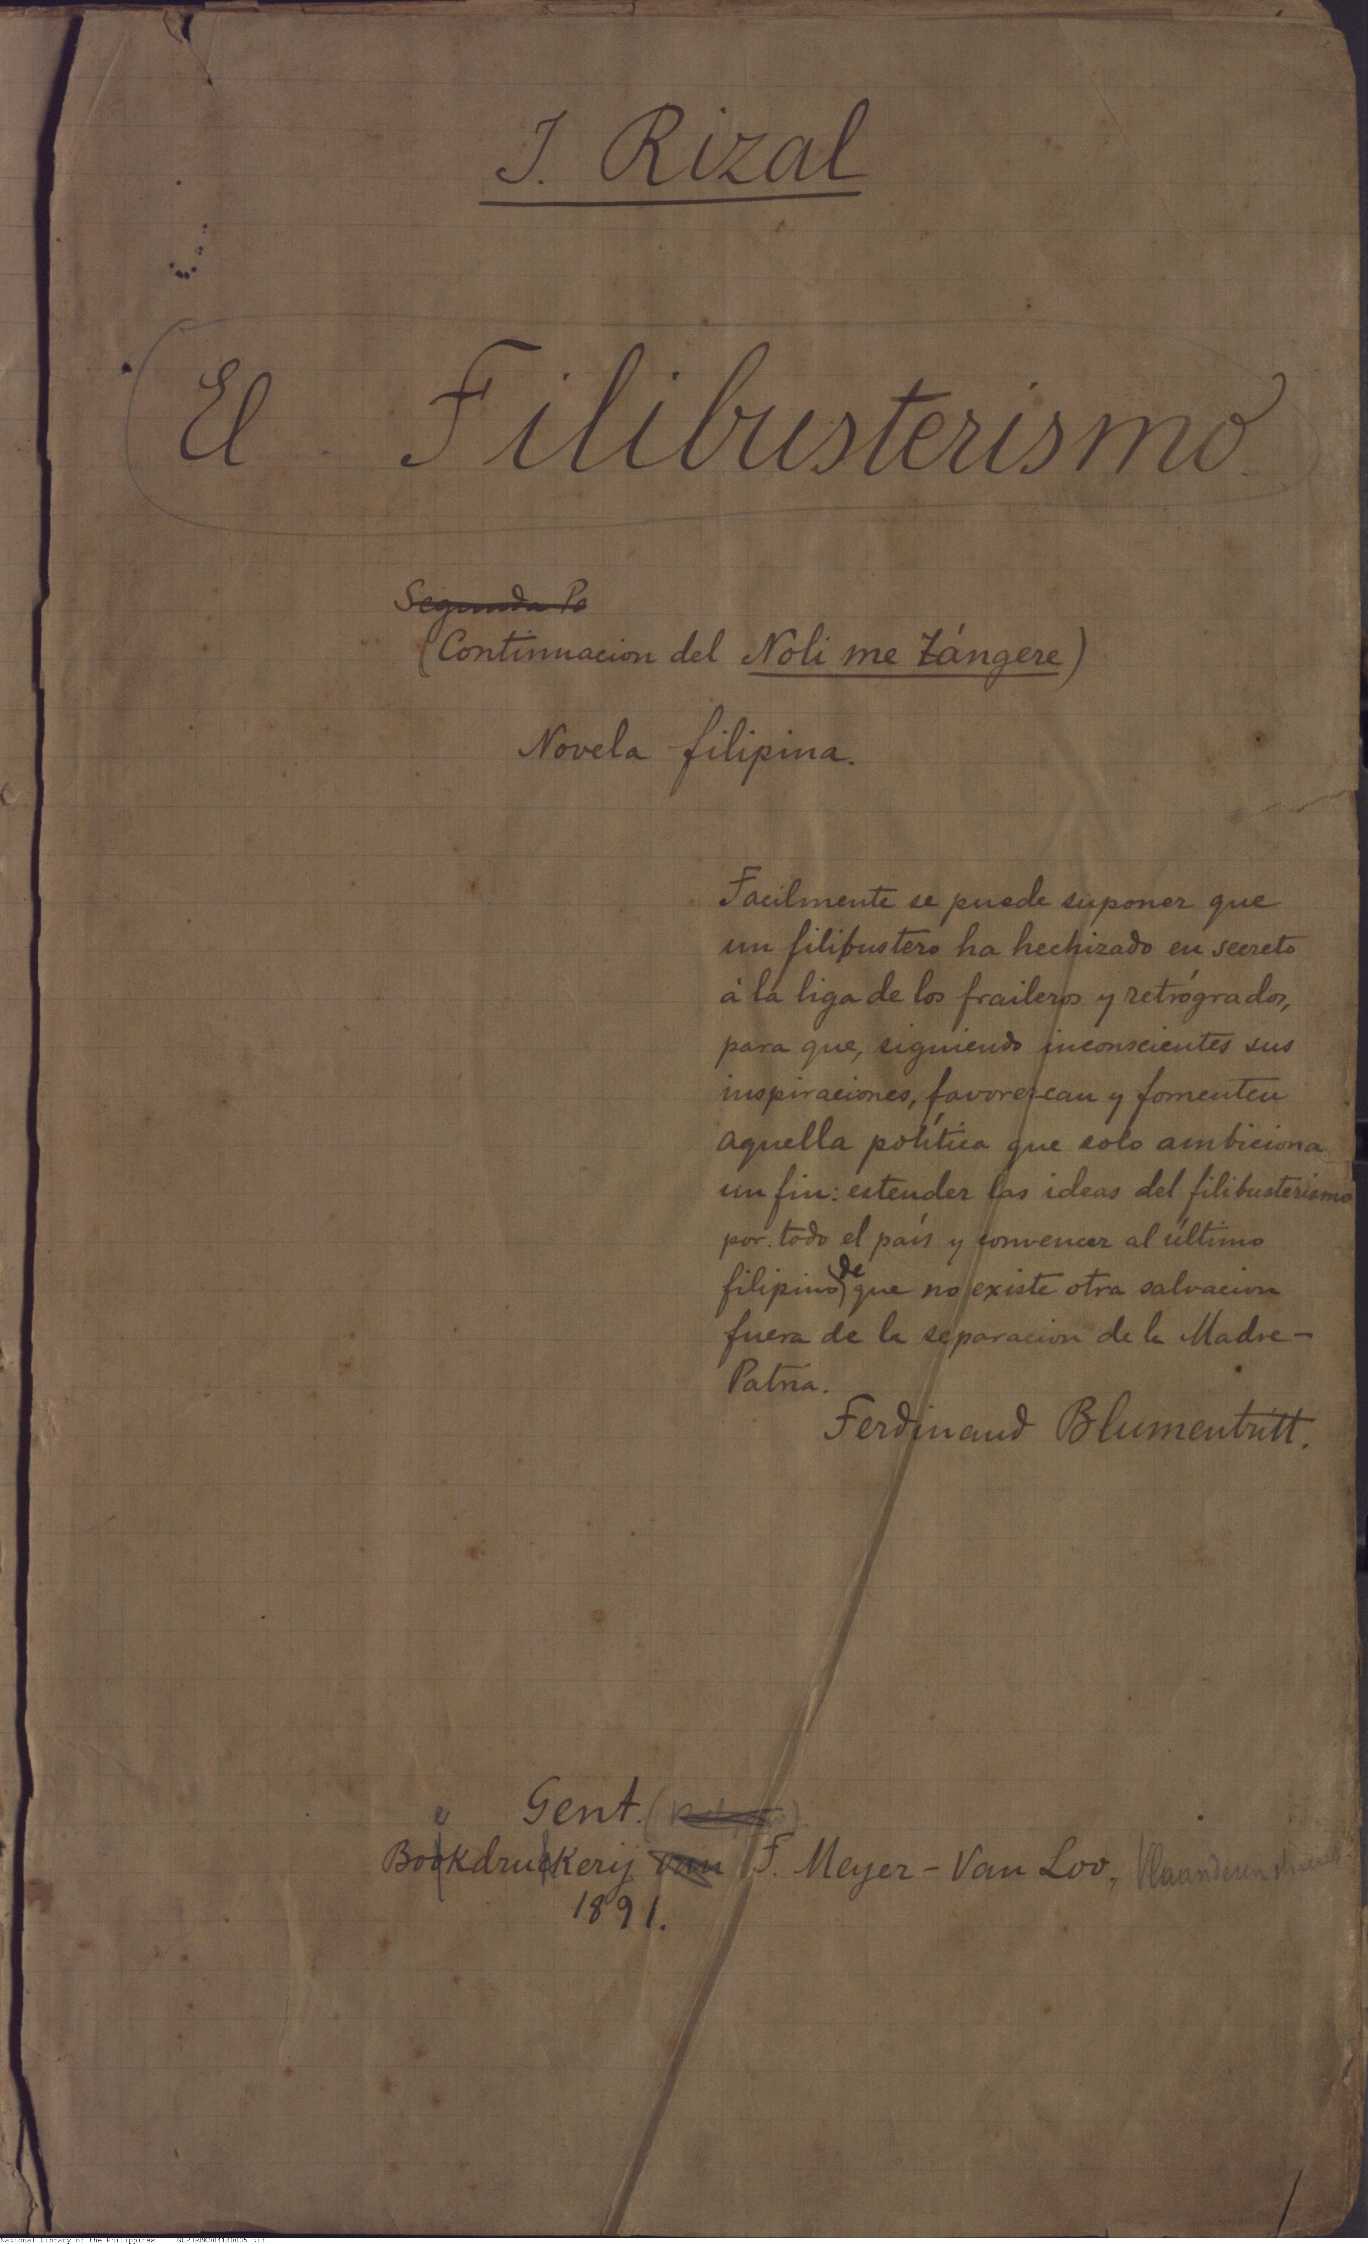 J. Rizal
El Filibusterismo
Segunda Pa
(Continuacion del Noli me tángere)
Novela filipina.
Facilmente se puede suponer que
un filibustero ha hechizado en secreto
á la liga de los fraileros y retrógrados,
para que, siguiendo inconscientes sus
inspiraciones, favorezcan y fomenten
aquella política que solo ambiciona
un fin: estender las ideas del filibusterismo
por todo el país y convencer al último
filipino de que no existe otra salvacion
fuera de la separacion de la Madre-
Patria.
Ferdinand Blumentritt.
Gent.
Boekdrukkerij van F. Meyer-Van Loo,
1891.
National Library of the Philippines